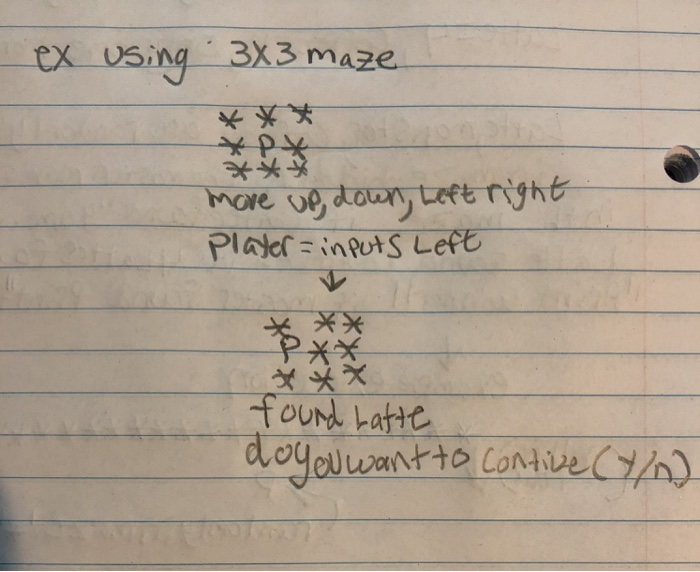 ex using 3X3 maze
* * *
* P *
* * *
move up, down, Left right
Player = inputs Left
↓
* * *
P * *
* * *
found Latte
do you want to contiue (Y/n)